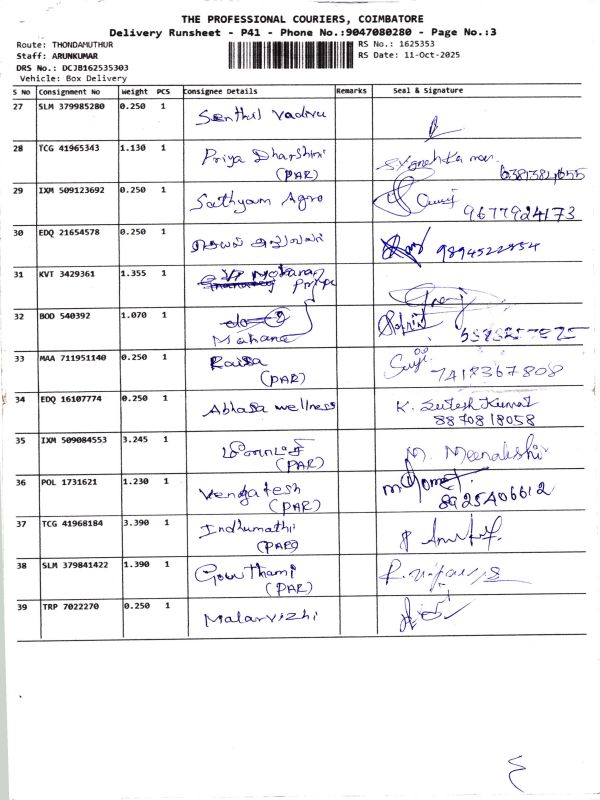 THE PROFESSIONAL COURIERS, COIMBATORE
Delivery Runsheet - P41 - Phone No.:9047080280 - Page No.:3
Route: THONDAMUTHUR
RS No.: 1625353
Staff: ARUNKUMAR
RS Date: 11-Oct-2025
DRS No.: DCJB162535303
Vehicle: Box Delivery
S No Consignment No Weight PCS Consignee Details Remarks Seal & Signature
27 SLM 379985280 0.250 1 Senthul Vadivu
28 TCG 41965343 1.130 1 Priya Dharshini
(PAR) 6381384655
29 IXM 509123692 0.250 1 Sathyam Agro
9677924173
30 EDQ 21654578 0.250 1 9894522854
31 KVT 3429361 1.355 1
32 BOD 540392 1.070 1
Mohana
33 MAA 711951140 0.250 1 Raisa
(PAR) 7418367808
34 EDQ 16107774 0.250 1 Abhasa wellness K. Sutesh Kumar
8870818058
35 IXM 509084553 3.245 1 மீனாட்சி M. Meenakshi
(PAR)
36 POL 1731621 1.230 1 Vengatesh
(PAR) 8925406612
37 TCG 41968184 3.390 1 Indhumathi
(PAR)
38 SLM 379841422 1.390 1 Gowthami
(PAR)
39 TRP 7022270 0.250 1 Malarvizhi